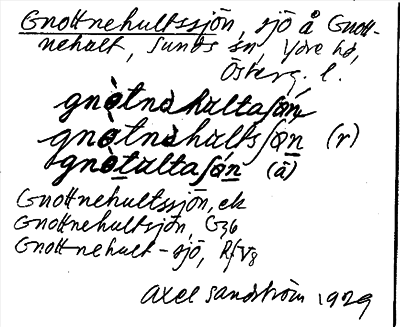 Gnottnehultssjön, sjö å Gnott-
nehult, Sunds sn, Ydre hd,
Österg. l.
gnòtnàhultaʃǿn
gnòtnàhultsʃøn (r)
gnotultaʃǿn (ä)
Gnottnehultssjön, ek
Gnottnehultsjön, G36
Gnottnehult-sjö, RfV8
Axel Sandström 1929